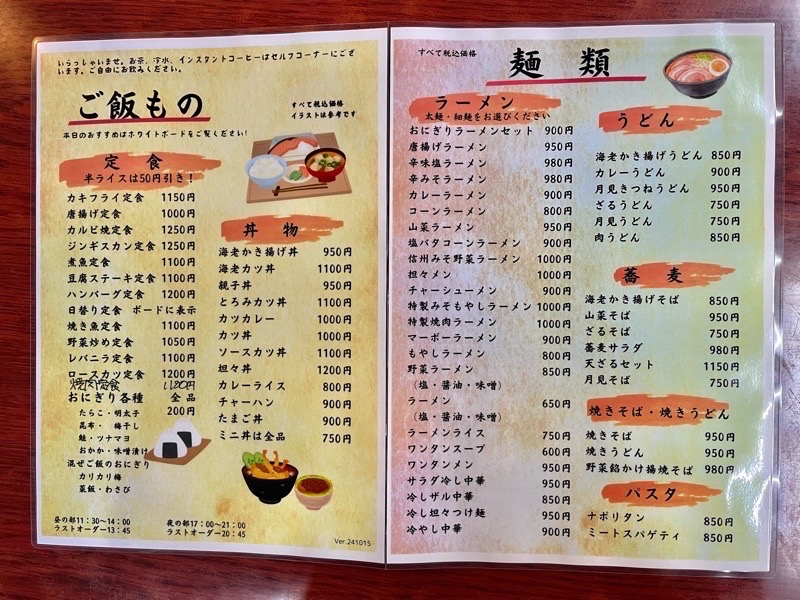 いらっしゃいませ。お茶、冷水、インスタントコーヒーはセルフコーナーにござ
います。ご自由にお飲みください。
ご飯もの
本日のおすすめはホワイトボードをご覧ください!
すべて税込価格
イラストは参考です
定食
半ライスは50円引き!
カキフライ定食 1150円
唐揚げ定食 1000円
カルビ焼定食 1250円
ジンギスカン定食 1250円
煮魚定食 1100円
豆腐ステーキ定食 1100円
ハンバーグ定食 1200円
日替り定食 ボードに表示
焼き魚定食 1100円
野菜炒め定食 1050円
レバニラ定食 1100円
ロースカツ定食 1200円
焼肉定食 1,100円
おにぎり各種 全品
200円
たらこ・明太子
昆布・ 梅干し
鮭・ツナマヨ
おかか・味噌漬け
混ぜご飯のおにぎり
カリカリ梅
菜飯・わさび
昼の部11:30〜14:00
ラストオーダー13:45
夜の部17:00〜21:00
ラストオーダー20:45
丼物
海老かき揚げ丼 950円
海老カツ丼 1100円
親子丼 950円
とろみカツ丼 1100円
カツカレー 1000円
カツ丼 1000円
ソースカツ丼 1100円
坦々丼 1200円
カレーライス 800円
チャーハン 900円
たまご丼 900円
ミニ丼は全品 750円
Ver.241015
すべて税込価格
麺類
ラーメン
太麺・細麺をお選びください
おにぎりラーメンセット 900円
唐揚げラーメン 950円
辛味塩ラーメン 980円
辛みそラーメン 980円
カレーラーメン 900円
コーンラーメン 800円
山菜ラーメン 950円
塩バタコーンラーメン 900円
信州みそ野菜ラーメン 1000円
担々メン 1000円
チャーシューメン 900円
特製みそもやしラーメン 1000円
特製焼肉ラーメン 1000円
マーボーラーメン 900円
もやしラーメン 800円
野菜ラーメン 850円
(塩・醤油・味噌)
ラーメン 650円
(塩・醤油・味噌)
ラーメンライス 750円
ワンタンスープ 600円
ワンタンメン 950円
サラダ冷し中華 950円
冷しザル中華 850円
冷し坦々つけ麺 950円
冷やし中華 900円
うどん
海老かき揚げうどん 850円
カレーうどん 900円
月見きつねうどん 950円
ざるうどん 750円
月見うどん 750円
肉うどん 850円
蕎麦
海老かき揚げそば 850円
山菜そば 950円
ざるそば 750円
蕎麦サラダ 980円
天ざるセット 1150円
月見そば 750円
焼きそば・焼きうどん
焼きそば 950円
焼きうどん 950円
野菜餡かけ揚焼そば 980円
パスタ
ナポリタン 850円
ミートスパゲティ 850円